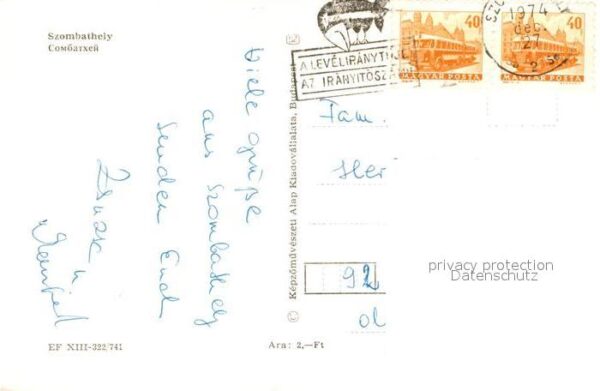 Szombathely
Сомбатхей
Viele Grüße
aus Szombathely
senden Euch
u
Manfred
EF XIII-322/741
Ara: 2,—Ft
© Képzőművészeti Alap Kiadóvállalata, Budapest
A LEVÉLIRÁNYÍT
AZ IRÁNYÍTÓSZ
40
MAGYAR POSTA
1974
dec.
27
40
MAGYAR POSTA
Fam.
Her
92
privacy protection
Datenschutz